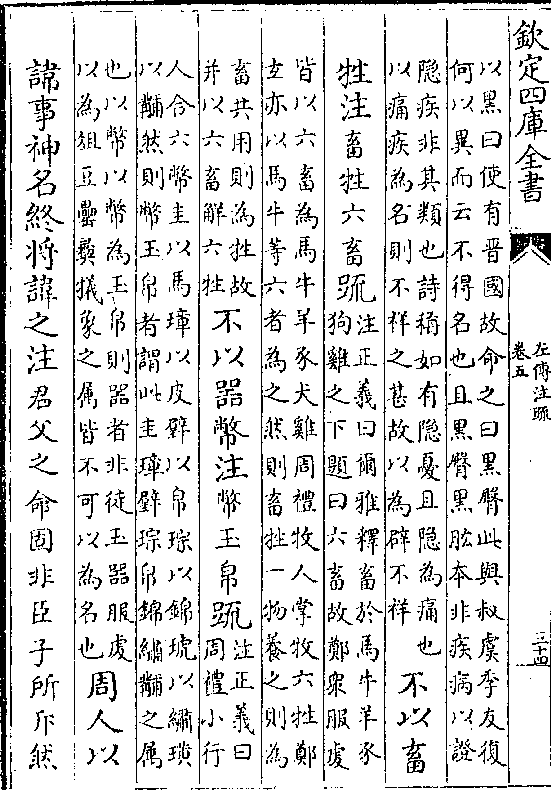 欽定四庫全書
左傳注疏
卷五
三十四
以黑曰使有晉國故命之曰黑臀此與叔虞季友復
何以異而云不得名也且黑臀黑肱本非疾病以證
隱疾非其類也詩稱如有隱憂且隱為痛也
以痛疾為名則不祥之甚故以為辟不祥
不以畜
牲注畜牲六畜疏
注正義曰爾雅釋畜於馬牛羊豕
狗雞之下題曰六畜故鄭衆服虔
皆以六畜為馬牛羊豕犬雞周禮牧人掌牧六牲鄭
玄亦以馬牛等六者為之然則畜牲一物養之則為
畜共用則為牲故
并以六畜解六牲
不以器幣注幣玉帛疏
注正義曰
周禮小行
人合六幣圭以馬璋以皮璧以帛琮以錦琥以繡璜
以黼然則幣玉帛者謂此圭璋璧琮帛錦繡黼之属
也以幣以幣為玉帛則器者非徒玉器服虔
以為俎豆罍彝犠象之属皆不可以為名也
周人以
諱事神名終将諱之注君父之命固非臣子所斥然